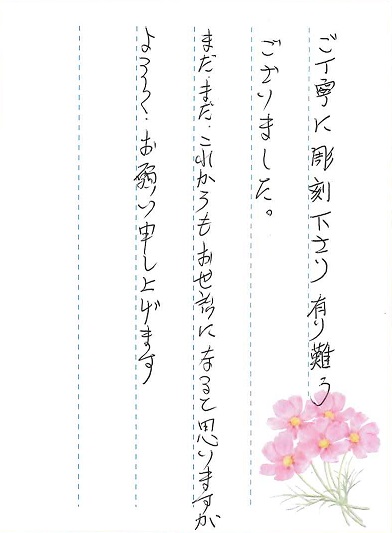 ご丁寧に彫刻下さり有り難う
ございました。
まだ・まだ・これからもお世話になると思いますが
よろしく・お願い申し上げます